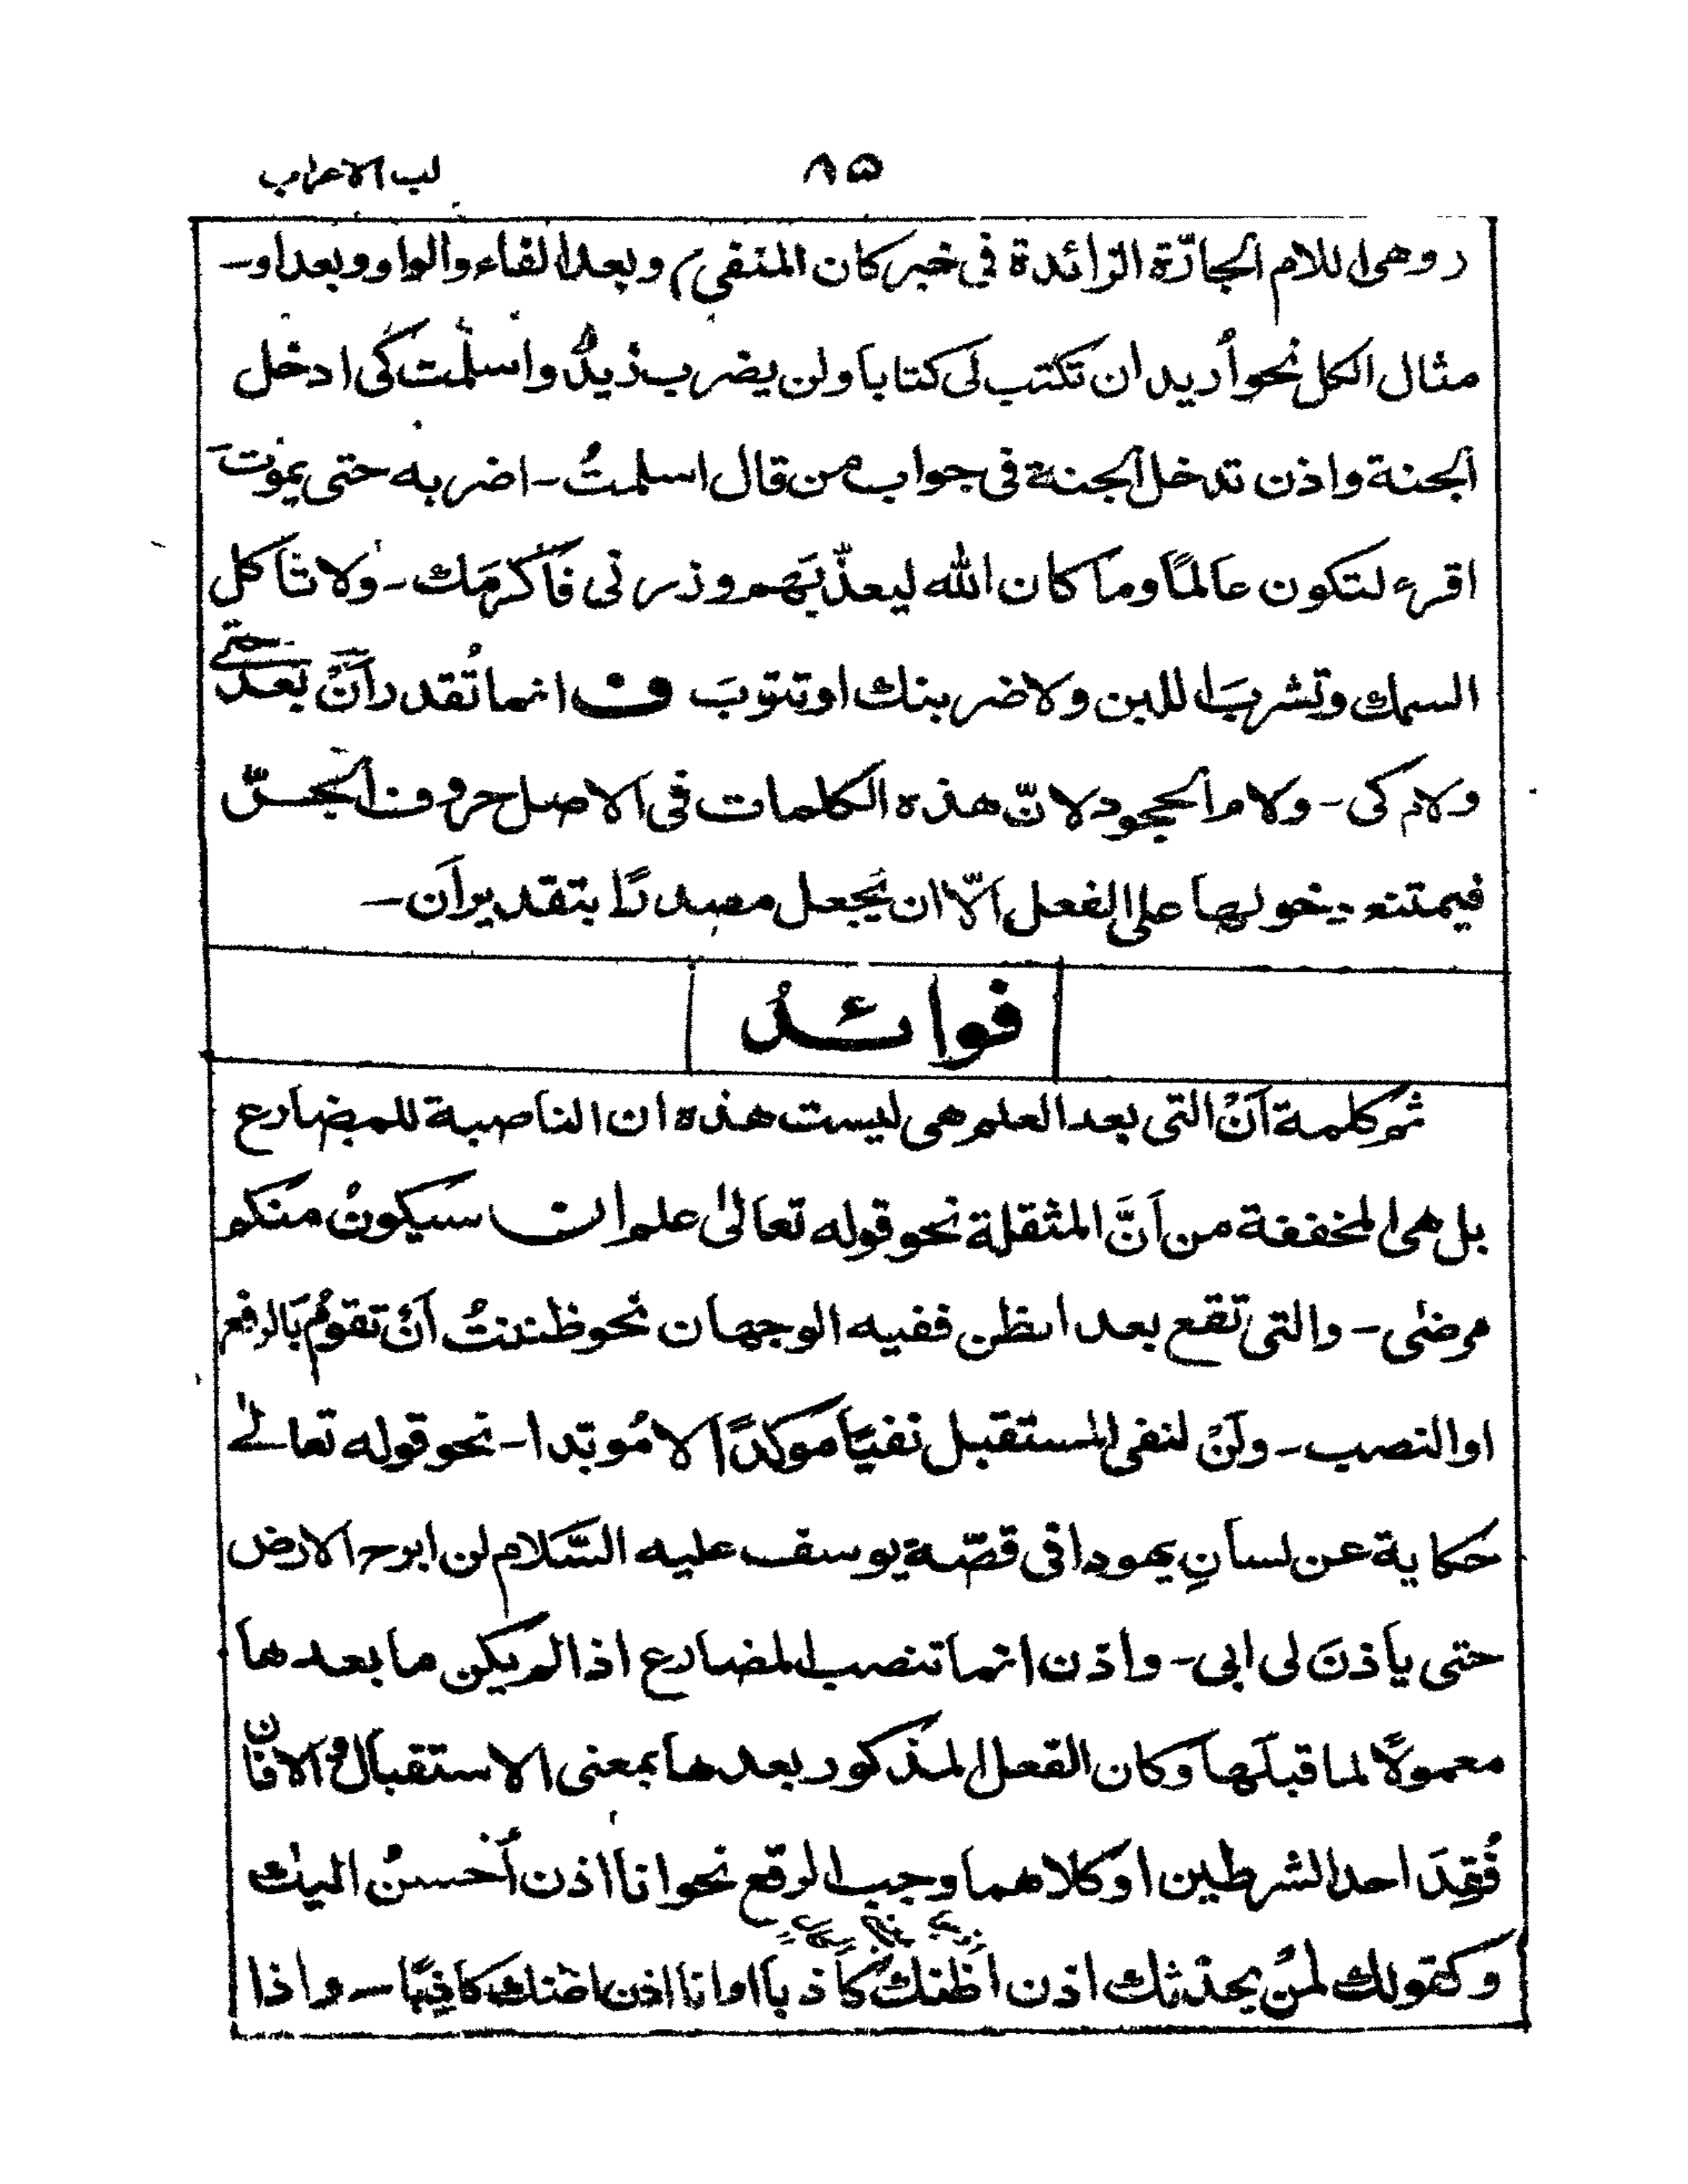 لب الاعراب ٨۵
(وهی اللام الجارّة الزائدة فی خبر کان المنفی) وبعد الفاء والواو وبعد او-
مثال الکل نحو أُرید ان تکتب لی کتابا ولن یضرب زیدٌ واسلمت کی ادخل
الجنة واذن تدخل الجنة فی جواب من قال اسلمتُ - اضربه حتی یموتَ
اقرء لتکون عالمًا وما کان الله لیعذّبَهم وزرنی فأکرمَك - ولا تأکل
السمك وتشربَ اللبن ولاضربنك او تتوبَ ف انما تُقدر اَنْ بعد حتی
ولام کی - ولام الجحود لانّ هذه الکلمات فی الاصل حروف الجرّ
فیمتنع دخولها علی الفعل الّا ان یُجعل مصدرًا بتقدیر اَن -
فوائدُ
ثم کلمة اَنْ التی بعد العلم هی لیست هذه ان الناصبة للمضارع
بل هی المخففة من اَنَّ المثقلة نحو قوله تعالیٰ علم ان سیکونُ منکم
مرضٰی - والتی تقع بعد الظن ففیه الوجهان نحو ظننتُ اَنْ تقومُ بالرفع
او النصب - ولَنْ لنفی المستقبل نفیًا موکدًا لا مُوبّدا - نحو قوله تعالےٰ
حکایة عن لسانِ یهودا فی قصّة یوسف علیه السَّلام لن ابرح الارض
حتی یأذنَ لی ابی - واذن انما تنصب المضارع اذا لم یکن ما بعدها
معمولًا لما قبلَها وکان الفعل المذکور بعدها بمعنی الاستقبال والا فان
فُقِدَ احد الشرطین او کلاهما وجب الرفع نحو انا اذن أُحسنُ الیك
وکقولك لمنْ یحدّثك اذن اظنكُ کاذبا او انا اذن اظنك کاذبًا - واذا